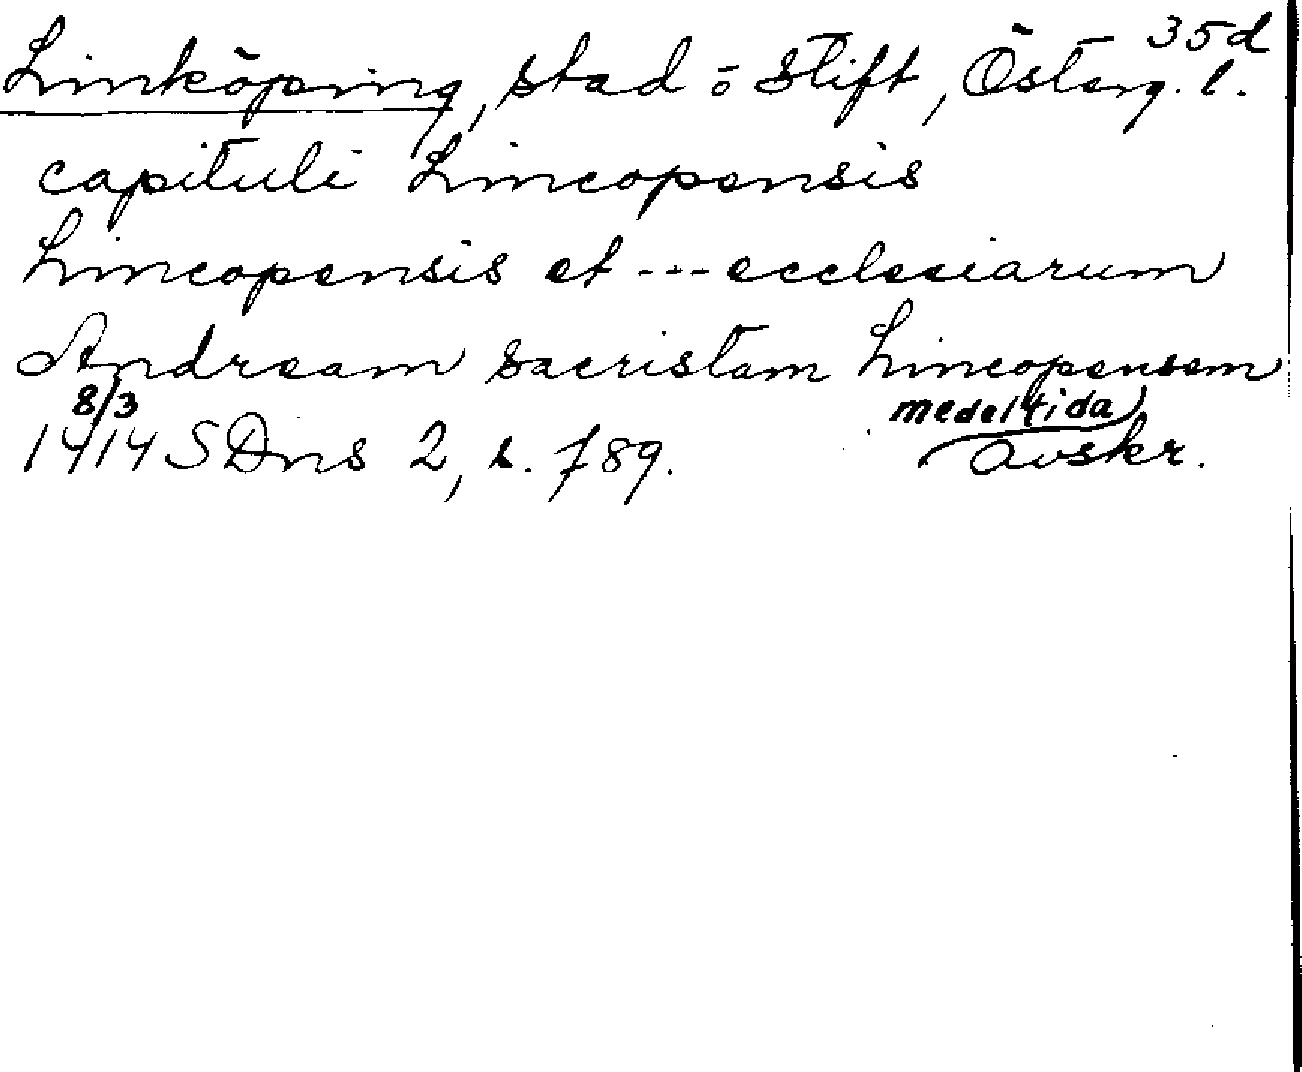 35d
Linköping, stad o stift, Österg. l.
capituli Lincopensis
Lincopensis et --- ecclesiarum
Andream sacristam Lincopensem
8/3 medeltida
1414 SDns 2, s. 789. avskr.